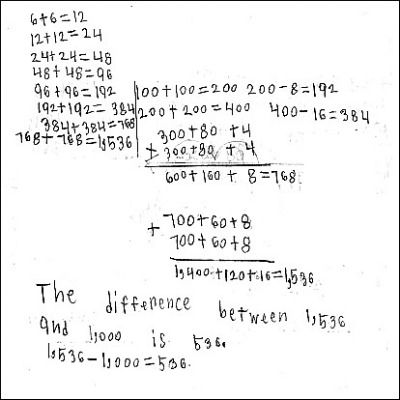 6+6=12
12+12=24
24+24=48
48+48=96
96+96=192
192+192=384
384+384=768
768+768=1,536
100+100=200 200-8=192
200+200=400 400-16=384
300+80+4
+ 300+80+4
600+160+8=768
+ 700+60+8
700+60+8
1,400+120+16=1,536
The difference between 1,536
and 1,000 is 536.
1,536-1,000=536.